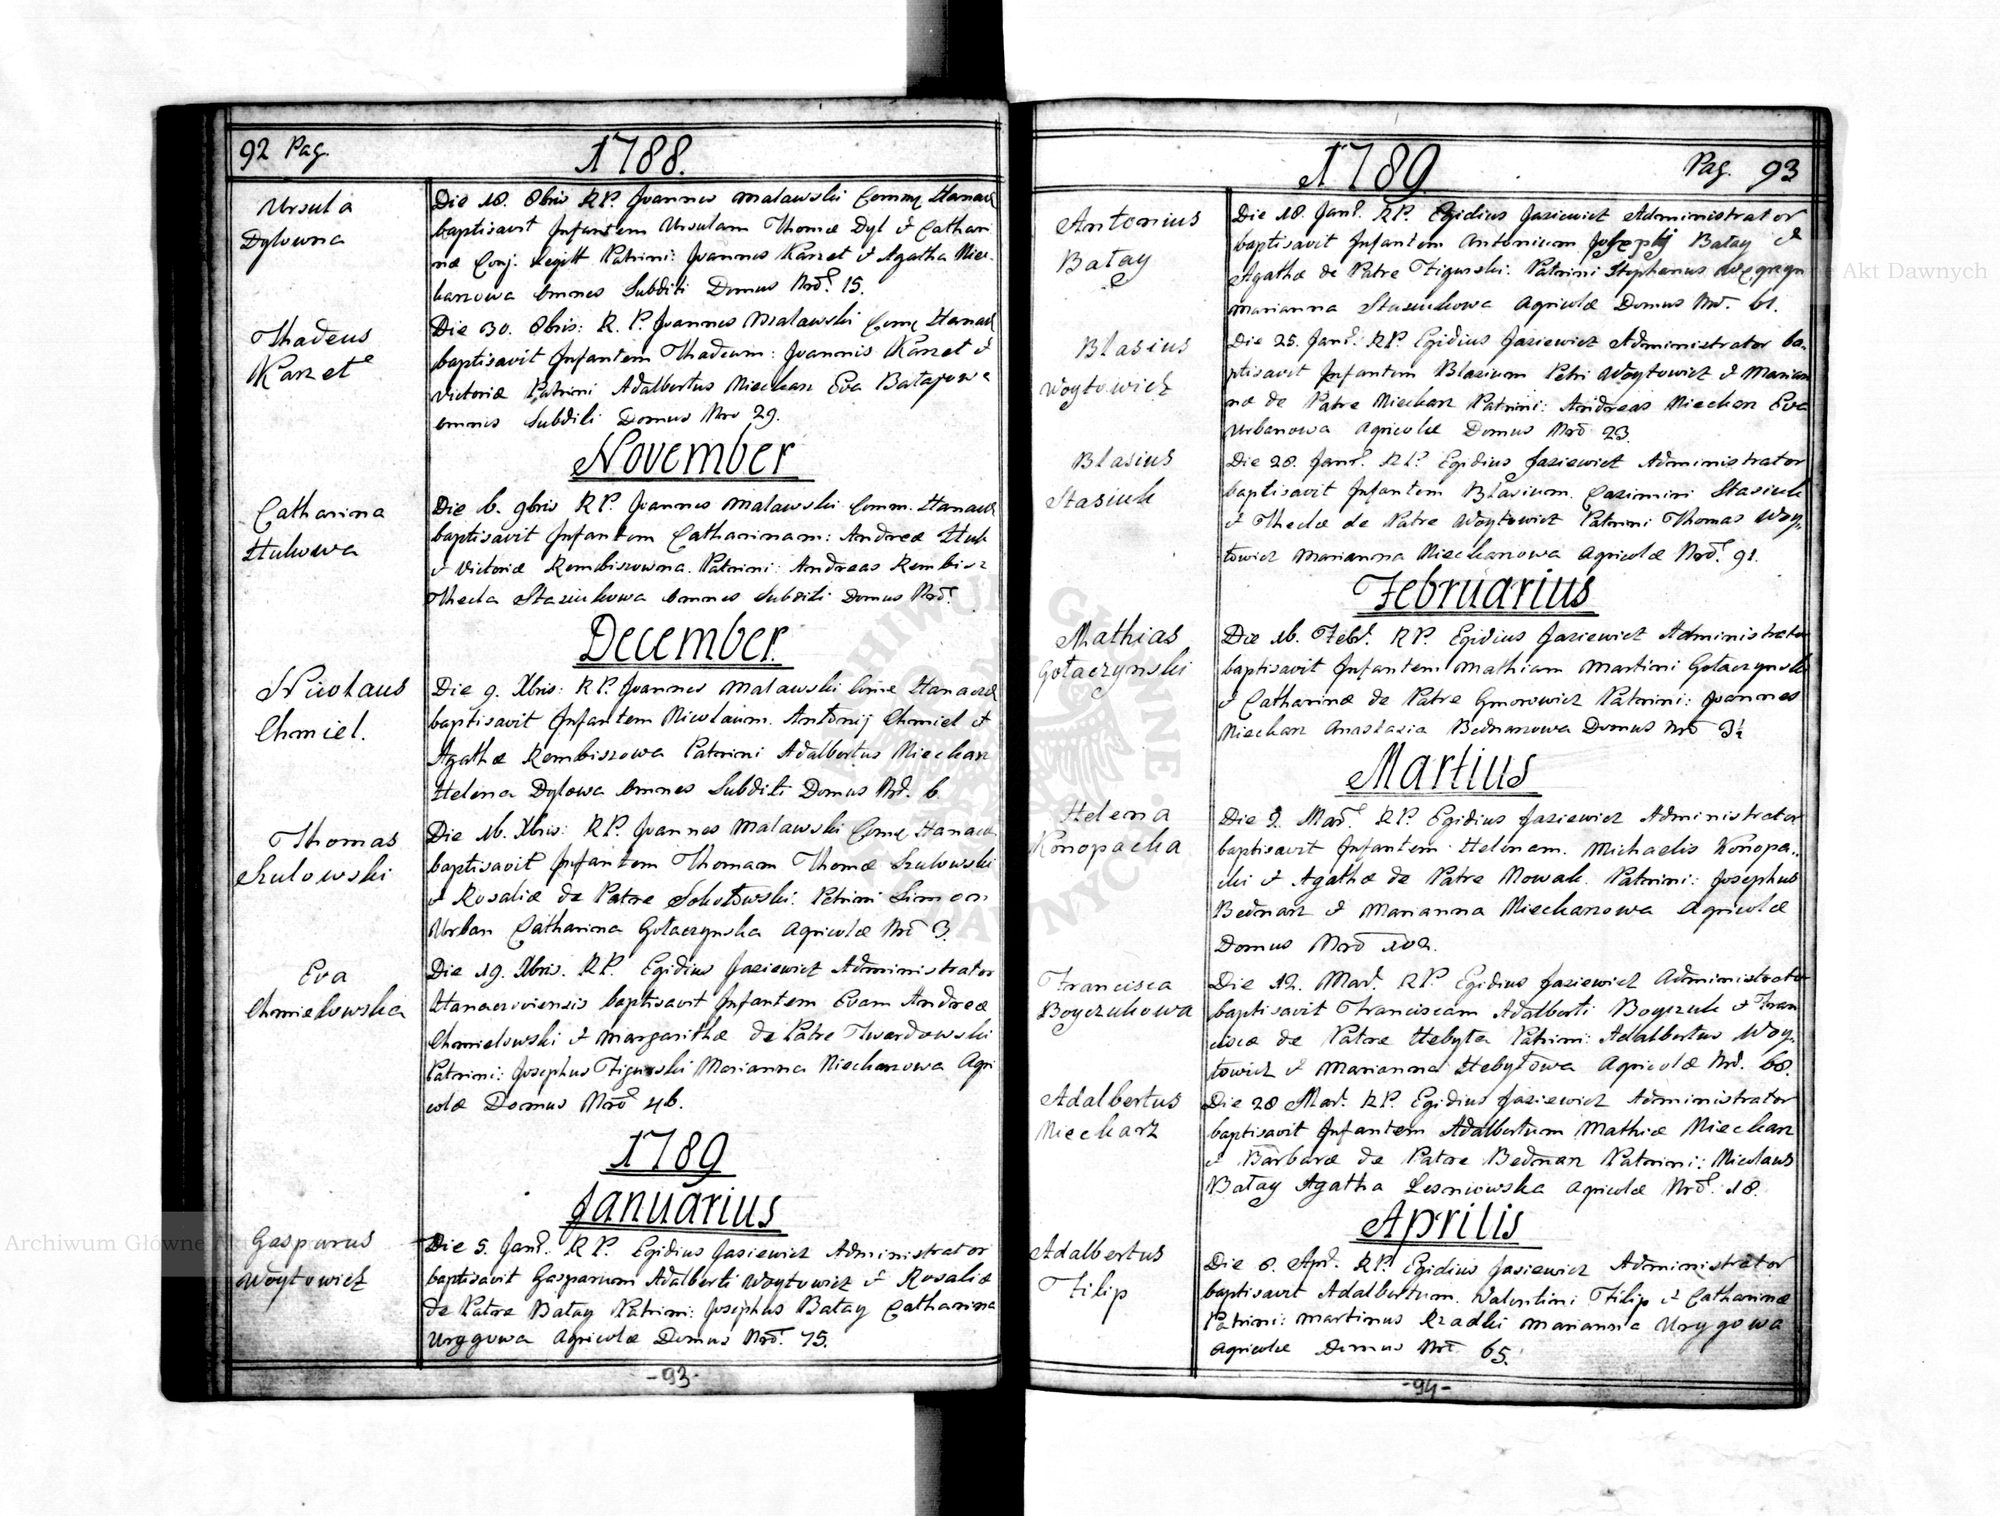 92 Pag.
1788.
Ursula
Dylowna
Die 18. 8bris RP. Joannes Malawski Comm Hanacz
baptisavit Infantem Ursulam Thomæ Dyl & Cathari
næ Conj. Legitt Patrini: Joannes Karzet & Agatha Niec-
harzowa omnes Subditi Domus Nrō 15.
Thadeus
Karzet
Die 30. 8bris: R. P. Joannes Malawski Comm Hanacz
baptisavit Infantem Thadeum: Joannis Karzet &
Victoriæ Patrini Adalbertus Niecharz Eva Batajowa
omnes Subditi Domus Nro 29.
November
Catharina
Hukowa
Die 6. 9bris RP. Joannes Malawski Comm. Hanacz
baptisavit Infantem Catharinam: Andreæ Huk
& Victoriæ Rembiszowna. Patrini: Andreas Rembisz
Thecla Stasiukowa omnes Subditi Domus Nrō.
December.
Nicolaus
Chmiel.
Die 9. Xbris: RP. Joannes Malawski Hanacz
baptisavit Infantem Nicolaum. Antonij Chmiel &
Agathæ Rembiszowa Patrini Adalbertus Niecharz
Helena Dylowa omnes Subditi Domus Nrō. 6
Thomas
Szulowski
Die 16. Xbris: RP. Joannes Malawski Hanacz
baptisavit Infantem Thomam Thomæ Szulowski
& Rosaliæ de Patre Sokołowski: Patrini Simon
Urban Catharina Gołaczynska Agricolæ Nrō 3.
Eva
Chmielowska
Die 19. Xbris. RP. Egidius Jasiewicz Administrator
Hanacziviensis baptisavit Infantem Evam Andreæ
Chmielowski & Margarithæ de Patre Twardowski
Patrini: Josephus Figurski Marianna Niecharzowa Agri
colæ Domus Nrō 46.
1789
Januarius
Gasparus
Woytowicz
Die 5. Janr. RP. Egidius Jasiewicz Administrator
baptisavit Gasparum Adalberti Woytowicz & Rosaliæ
de Patre Batay Patrini: Josephus Batay Catharina
Uryggowa Agricolæ Domus Nrō. 75.
-93-
1789
Pag. 93
Antonius
Batay
Die 18. Janr. RP. Egidius Jasiewicz Administrator
baptisavit Infantem Antonium Josephj Batay &
Agathæ de Patre Figurski: Patrini Stephanus
Marianna Stasiukowa Agricolæ Domus Nrō 61.
Blasius
Woytowicz
Die 25. Janr. RP. Egidius Jasiewicz Administrator ba-
ptisavit Infantem Blasium Petri Woytowicz & Marian
næ de Patre Niecharz Patrini: Andreas Niecharz Eva
Urbanowa Agricolæ Domus Nrō 23.
Blasius
Stasiuk
Die 28. Janr. RP. Egidius Jasiewicz Administrator
baptisavit Infantem Blasium. Casimiri Stasiuk
& Theclæ de Patre Woytowicz Patrini Thomas Woy,
towicz Marianna Niecharzowa Agricolæ Nrō. 91.
Februarius
Mathias
Gołaczynski
Die 16. Febr. RP. Egidius Jasiewicz Administrator
baptisavit Infantem Mathiam Martini Gołaczynski
& Catharinæ de Patre Gmorowicz Patrini: Joannes
Niecharz Anastasia Bednarzowa Domus Nrō
Martius
Helena
Konopacka
Die 9. Mar. RP. Egidius Jasiewicz Administrator
baptisavit Infantem Helenam. Michaelis Konopa..
cki & Agathæ de Patre Nowak Patrini: Josephus
Bednarz & Marianna Niecharzowa Agricolæ
Domus Nrō 102.
Francisca
Boyczukowa
Die 12. Mar. RP. Egidius Jasiewicz Administrator
baptisavit Franciscam Adalberti Boyczuk & Fran
ciscæ de Patre Hebyta Patrini: Adalbertus Woy,
towicz & Marianna Hebytowa Agricolæ Nrō. 68.
Adalbertus
Niecharz
Die 28 Mar. RP. Egidius Jasiewicz Administrator
baptisavit Infantem Adalbertum Mathiæ Niecharz
& Barbaræ de Patre Bednarz Patrini: Nicolaus
Batay Agatha Lesniowska Agricolæ Nrō. 18.
Aprilis
Adalbertus
Filip
Die 8. Apr. RP. Egidius Jasiewicz Administrator
baptisavit Adalbertum. Walentini Filip & Catharinæ
Patrini: Martinus Rzadki Marianna Urygowa
Agricolæ Domus Nrō 65.
-94-
Archiwum Główne Akt Dawnych